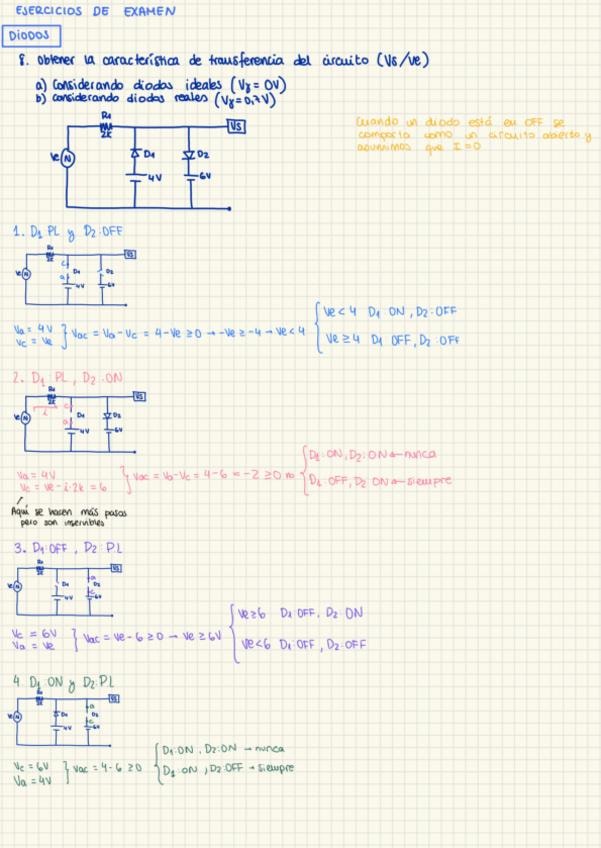 EJERCICIOS DE EXAMEN
DIODOS
8. Obtener la característica de transferencia del circuito (Vs/ve)
a) Considerando diodos ideales (Vγ = 0V)
b) considerando diodos reales (Vγ = 0,7V)
Cuando un diodo está en OFF se
comporta como un circuito abierto y
asumimos que I=0
R1
2k
Ve
D1
4V
D2
6V
VS
1. D1 PL y D2:OFF
Va = 4V
Vc = Ve
Vac = Va-Vc = 4-Ve ≥ 0 → -Ve ≥ -4 → Ve < 4
Ve < 4 D1 ON, D2: OFF
Ve ≥ 4 D1 OFF, D2: OFF
2. D1: PL, D2: ON
Va = 4V
Vc = Ve - i·2k = 6
Vac = Va-Vc = 4-6 = -2 ≥ 0 no
D1: ON, D2: ON ← nunca
D1: OFF, D2 ON ← siempre
Aquí se hacen más pasos
pero son inservibles
3. D1: OFF, D2: PL
Vc = 6V
Va = Ve
Vac = Ve-6 ≥ 0 → Ve ≥ 6V
Ve ≥ 6 D1 OFF, D2: ON
Ve < 6 D1: OFF, D2: OFF
4. D1: ON y D2: PL
Vc = 6V
Va = 4V
Vac = 4-6 ≥ 0
D1: ON, D2: ON → nunca
D1: ON, D2: OFF → siempre